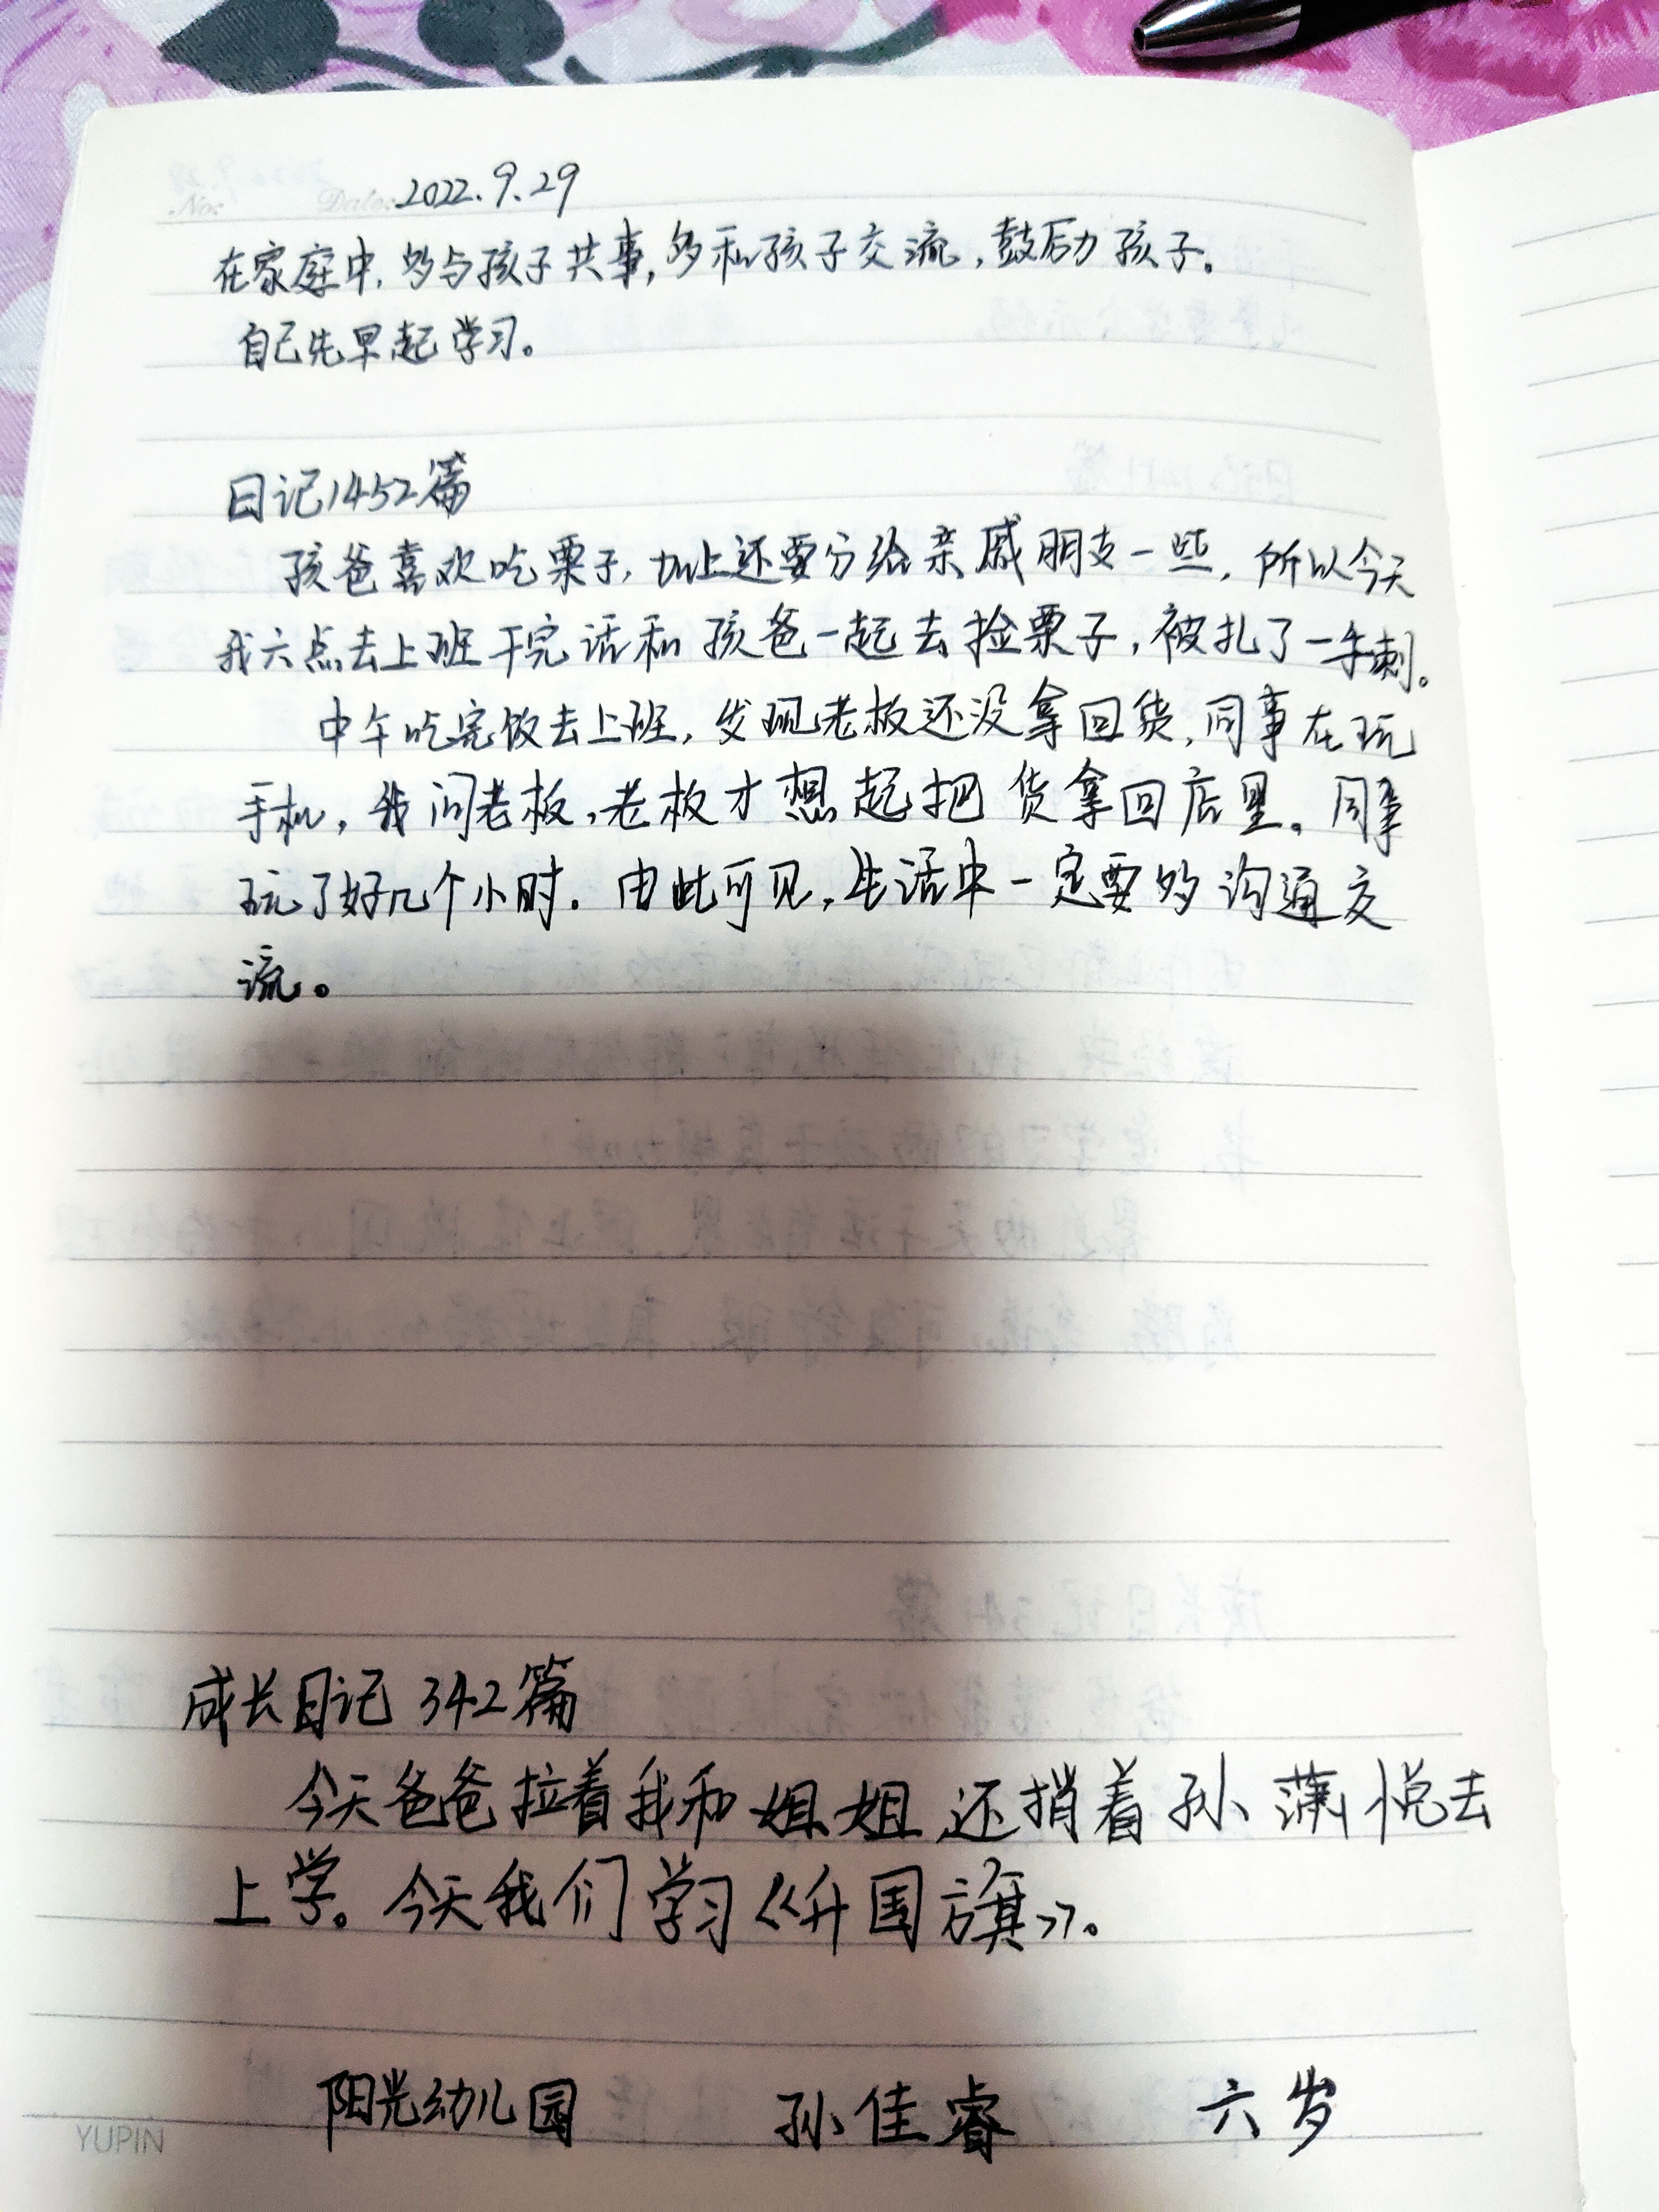 No: Date: 2022.9.29
在家庭中,多与孩子共事,多和孩子交流,鼓励孩子。
自己先早起学习。
日记1452篇
孩爸喜欢吃栗子,加上还要分给亲戚朋友一些,所以今天
我六点去上班干完活和孩爸一起去捡栗子,被扎了一手刺。
中午吃完饭去上班,发现老板还没拿回货,同事在玩
手机,我问老板,老板才想起把货拿回店里。同事
玩了好几个小时。由此可见,生活中一定要多沟通交
流。
成长日记 342篇
今天爸爸拉着我和姐姐还捎着孙蒲悦去
上学。今天我们学习《升国旗》。
阳光幼儿园 孙佳睿 六岁
YUPIN